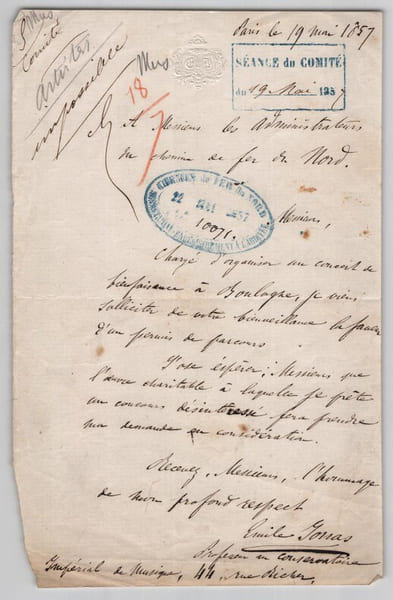 Paris le 19 mai 1857
Comité
Artistes
impossible
Mers
18
SÉANCE du COMITÉ
du 19 Mai 1857
A Messieurs les administrateurs
du chemin de fer du Nord.
CHEMIN DE FER DU NORD
22 MAI 1857
10071
Messieurs,
Chargé d'organiser un concert de
bienfaisance à Boulogne, je viens
solliciter de votre bienveillance la faveur
d'un permis de parcours.
J'ose espérer, Messieurs que
l'œuvre charitable à laquelle je prête
un concours désintéressé fera prendre
ma demande en considération.
Recevez, Messieurs, l'hommage
de mon profond respect
Emile Jonas
Professeur au conservatoire
Impérial de Musique, 44, rue Richer,